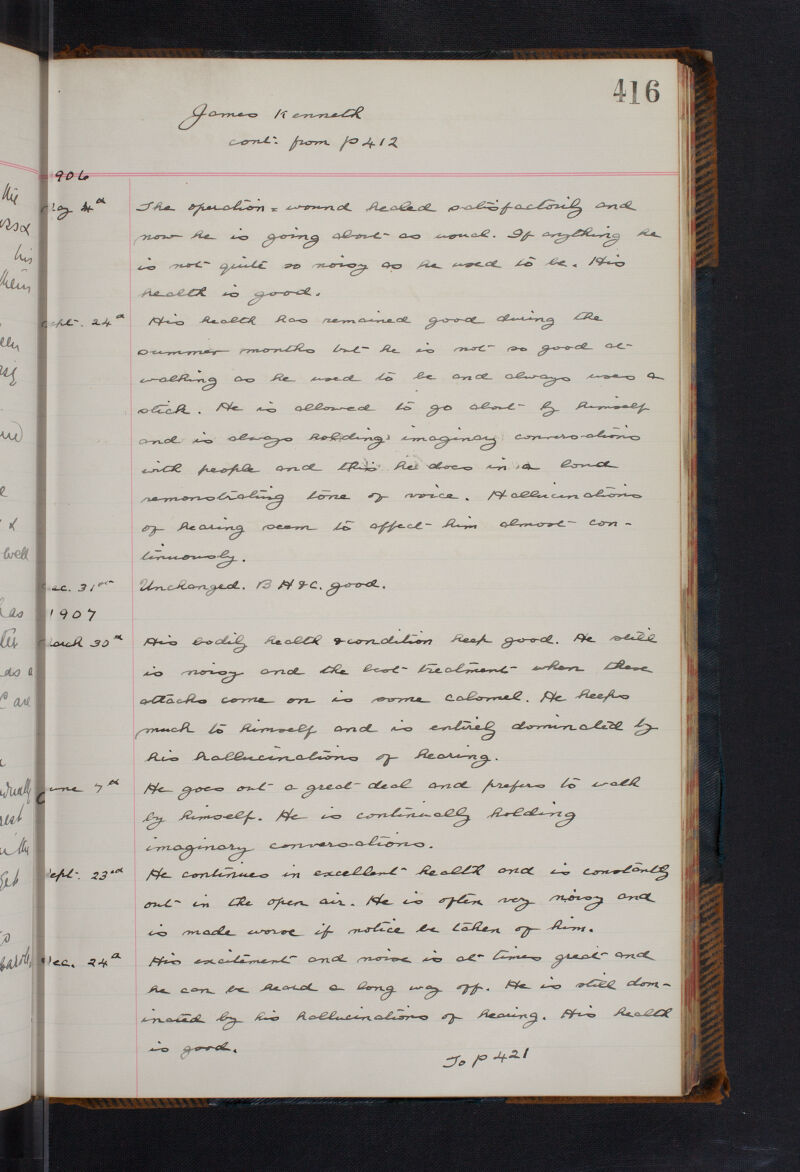 416
James Kenneth
cont. from p 412
906
May 4th The operation-wound healed satisfactorily and
now he is going about as usual. If anything he
is not quite so noisy as he used to be. His
health is good.
Sept. 24th His health has remained good during the
summer months but he is not so good at
walking as he used to be and always uses a
stick. He is allowed to go about by himself
and is always holding imaginary conversations
with people and this he does in a loud
remonstrating tone of voice. Hallucinations
of hearing seem to affect him almost con-
tinuously.
Dec. 31st Unchanged. B H & C. good.
1907
March 30th His bodily health & condition keep good. He still
is noisy and the best treatment when these
attacks come on is some calomel. He keeps
much to himself and is entirely dominated by
his hallucinations of hearing.
June 7th He goes out a great deal and prefers to walk
by himself. He is continually holding
imaginary conversations.
Sept. 23rd He continues in excellent health and is constantly
out in the open air. He is often very noisy and
is made worse if notice be taken of him.
Dec. 24th His excitement and noise is at times great and
he can be heard a long way off. He is still dom-
inated by his hallucinations of hearing. His health
is good.
To p 421